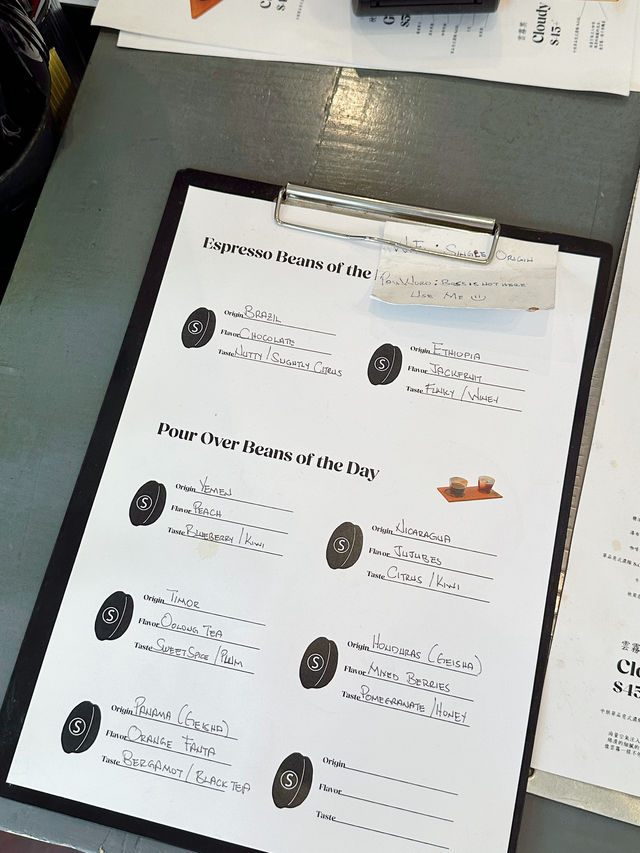 Cloudy
$45
Espresso Beans of the
: SINGLE ORIGIN
PASSWORD : BOSS IS NOT HERE
USE ME
S
Origin BRAZIL
Flavor CHOCOLATE
Taste NUTTY / SLIGHTLY CITRUS
S
Origin ETHIOPIA
Flavor JACKFRUIT
Taste FUNKY / WINEY
Pour Over Beans of the Day
S
Origin YEMEN
Flavor PEACH
Taste BLUEBERRY / KIWI
S
Origin NICARAGUA
Flavor JUJUBES
Taste CITRUS / KIWI
S
Origin TIMOR
Flavor OOLONG TEA
Taste SWEET SPICE / PLUM
S
Origin HONDURAS (GEISHA)
Flavor MIXED BERRIES
Taste POMEGRANATE / HONEY
S
Origin PANAMA (GEISHA)
Flavor ORANGE FANTA
Taste BERGAMOT / BLACK TEA
S
Origin
Flavor
Taste
雲霧
Clo
$45